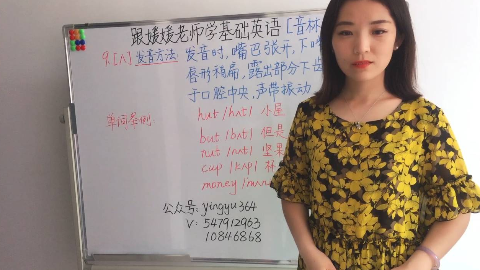 跟媛媛老师学基础英语 [音标
9.[ʌ] 发音方法: 发音时,嘴巴张开,下
唇形稍扁,露出部分下齿
于口腔中央,声带振动
单词举例
hut /hʌt/ 小屋
but /bʌt/ 但是
nut /nʌt/ 坚果
cup /kʌp/ 杯
money /mʌn
公众号: yingyu364
V: 547912963
10846868